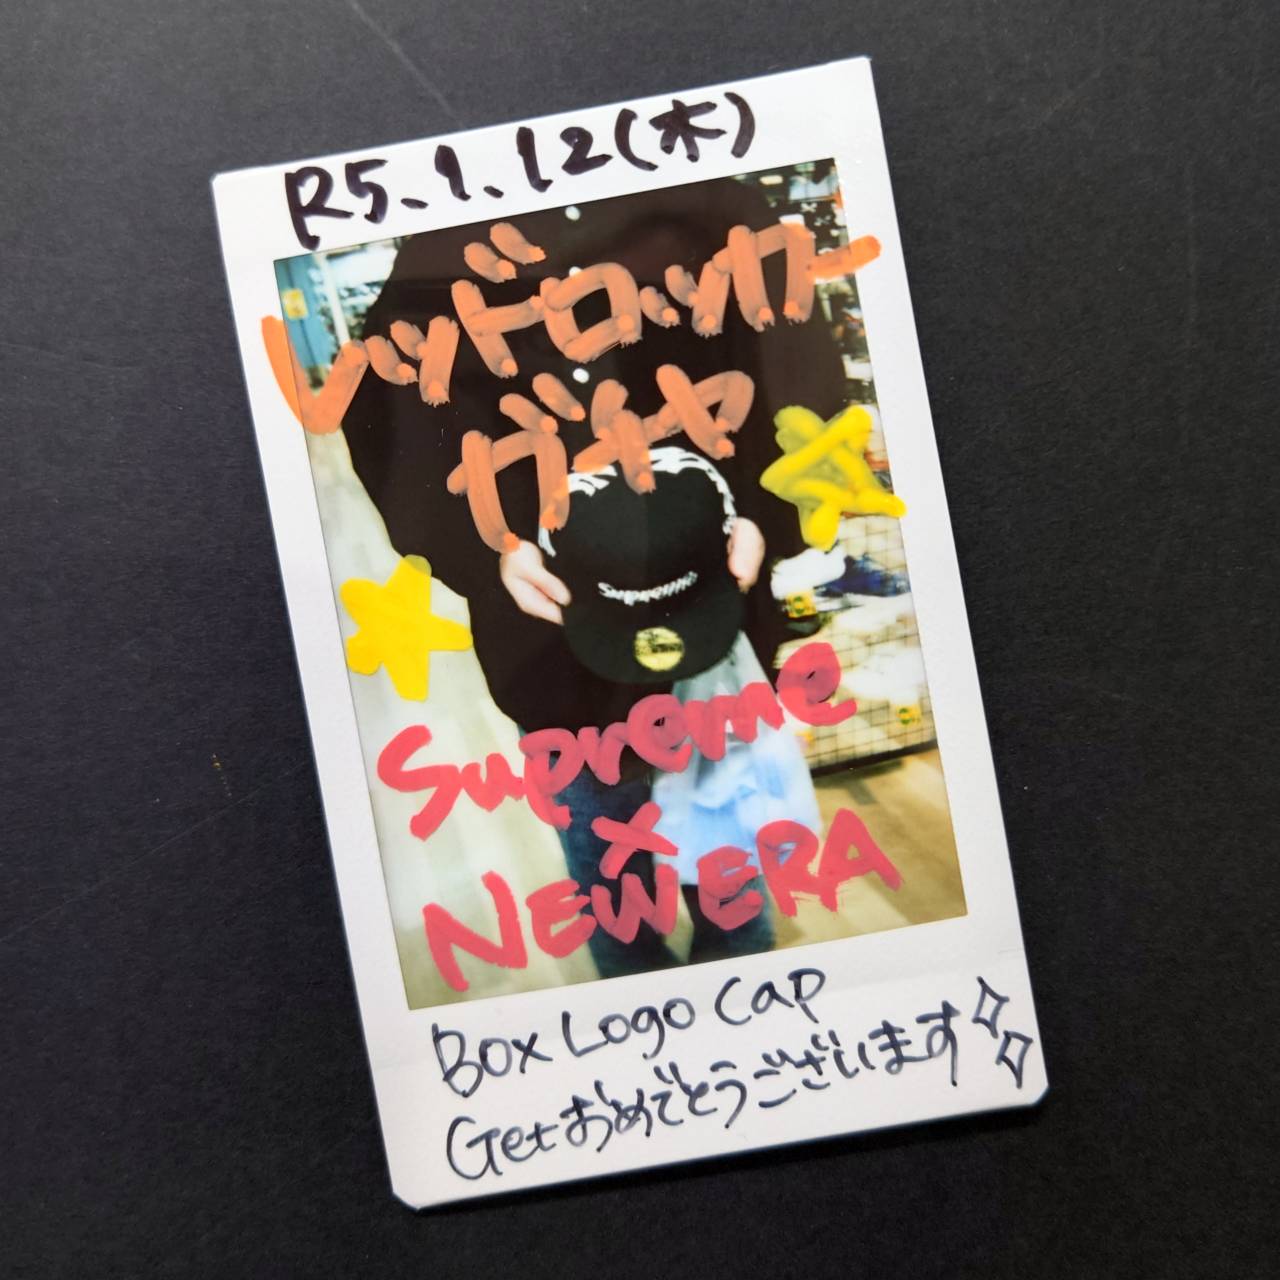 R5.1.12(木)
レッドロッカー
ガチャ
Supreme
Supreme
×
NEW ERA
Box Logo Cap
Getおめでとうございます